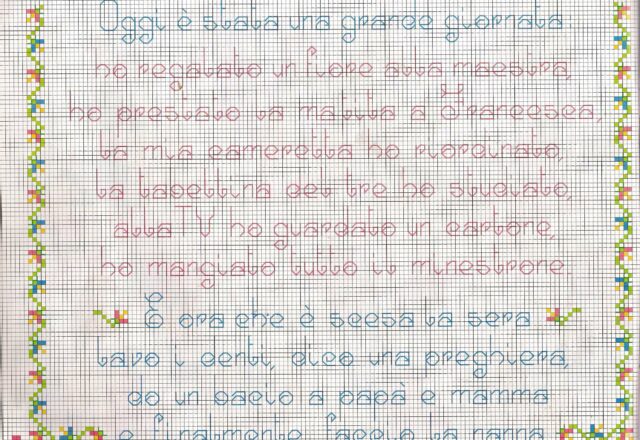 Oggi è stata una grande giornata:
ho regalato un fiore alla maestra,
ho prestato la matita a Francesca,
la mia cameretta ho riordinato,
la tabellina del tre ho studiato,
alla TV ho guardato un cartone,
ho mangiato tutto il minestrone.
È ora che è scesa la sera
lavo i denti, dico una preghiera,
do un bacio a papà e mamma
e finalmente faccio la nanna